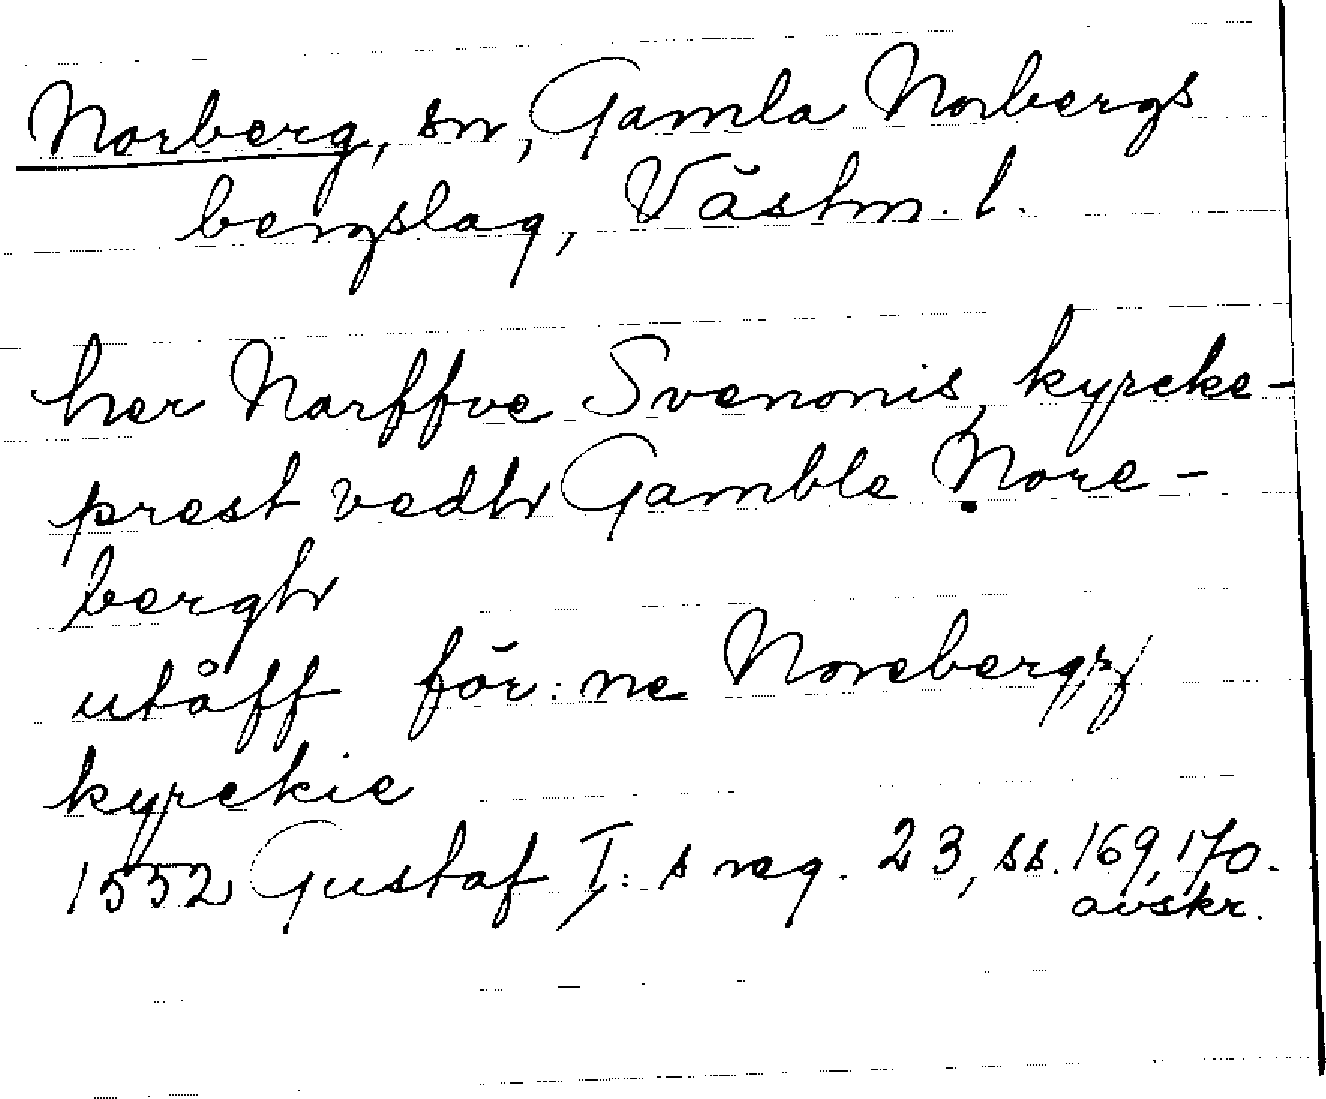 Norberg, sn, Gamla Norbergs
bergslag, Västm. l.
her Narffve Svenonis, kyrcke-
prest vedh Gamble Nore-
bergh
utåff för: ne Norebergz
kyrckie
1552 Gustaf I: s reg. 23, ss. 169, 170.
avskr.